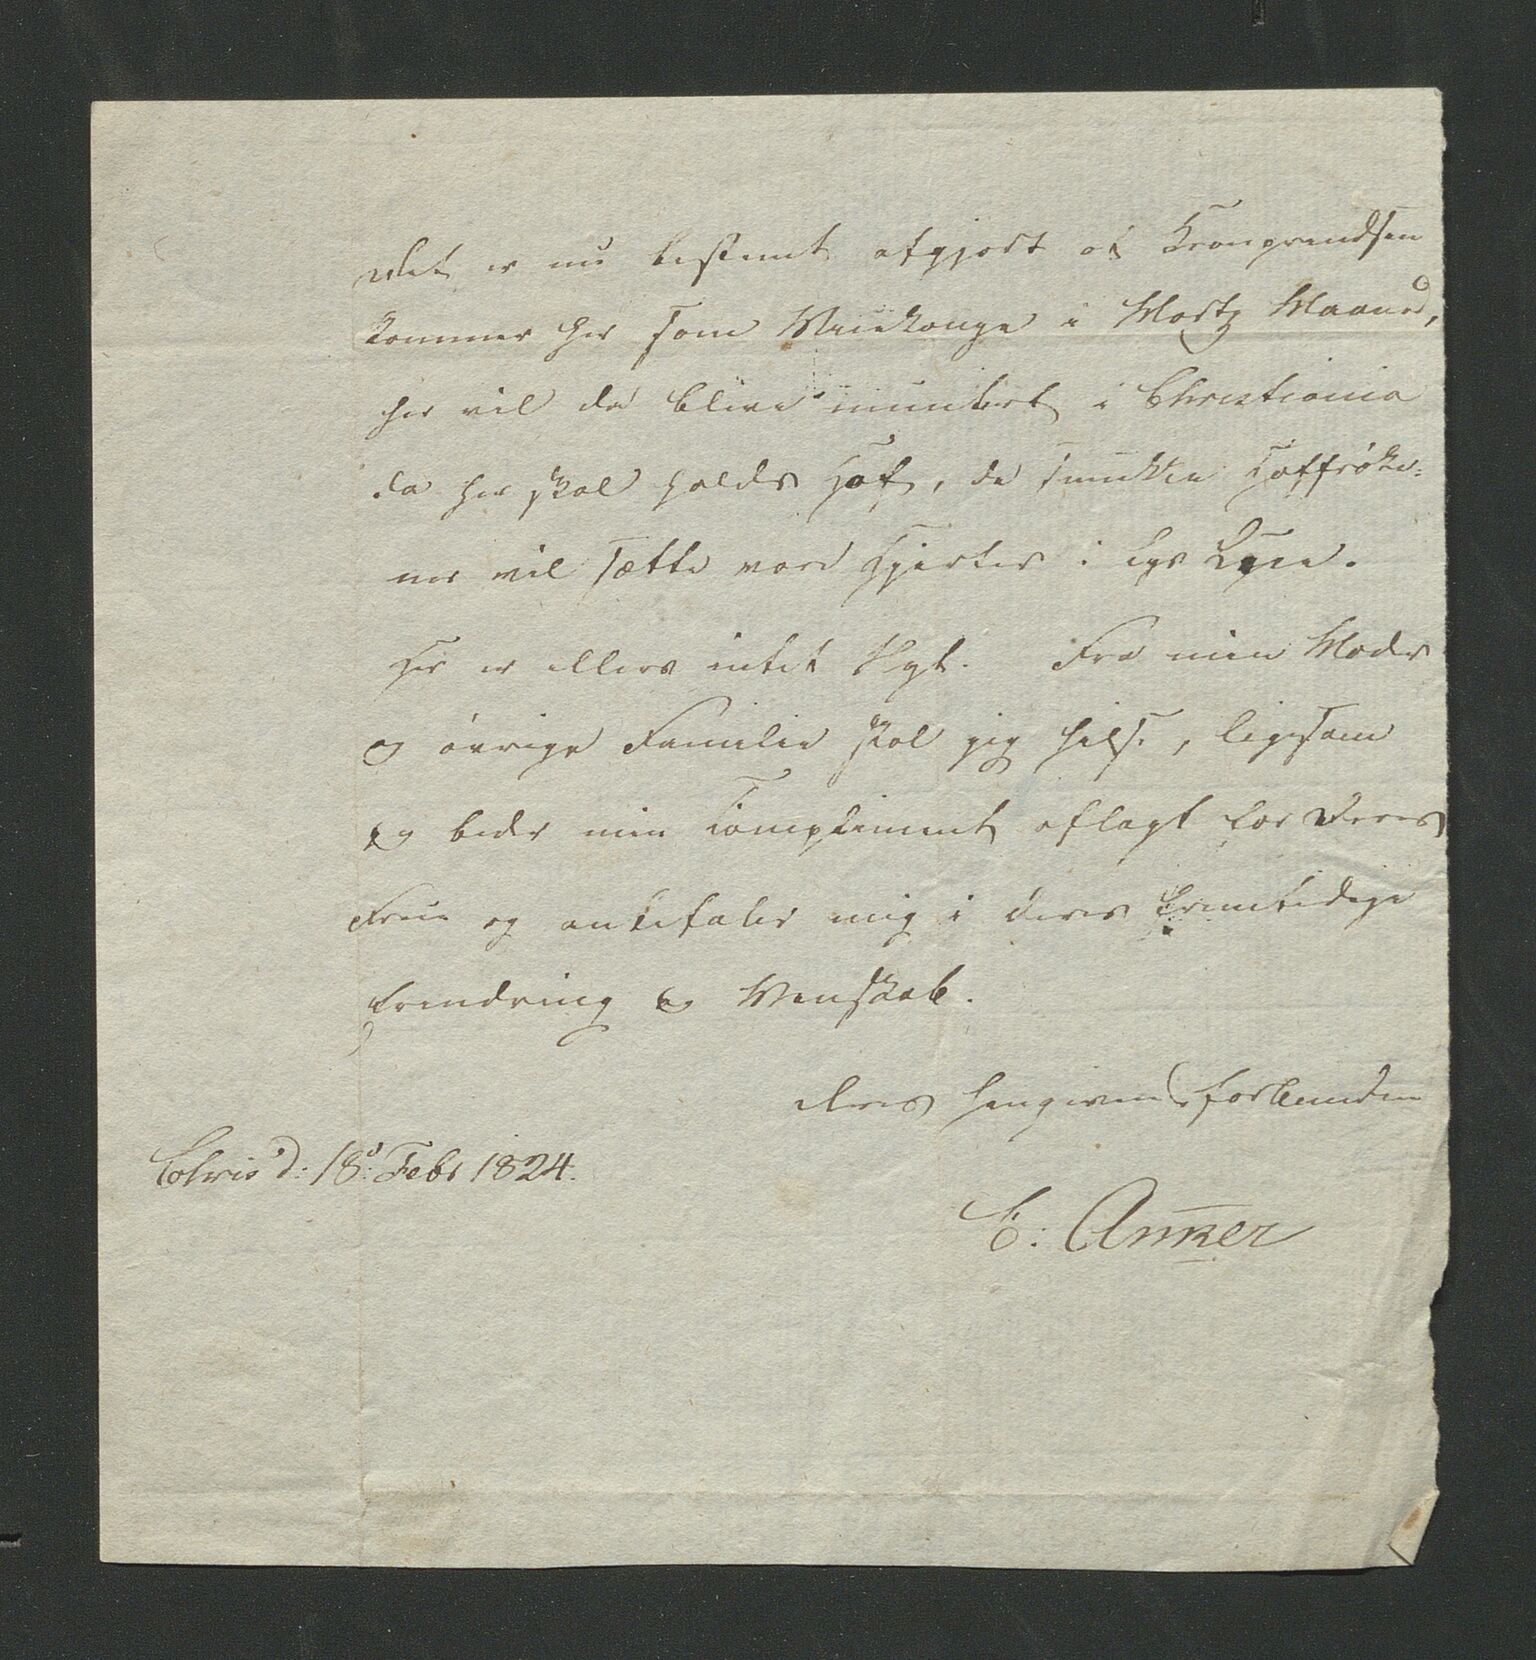 Det er nu bestemt afgjort at Kronprindsen
kommer her som Vicekonge i Martz Maaned,
her vil da blive muntert i Christiania
da her skal holdes Hof, de smukke Hoffrøke-
ner vil sætte vore Hjerter i lys Lue.
Her er ellers intet Nyt. Fra min Moder
og øvrige Familie skal jeg hilse, ligesom
og beder min Compliment aflagt for Deres
Frue og anbefaler mig i Deres fremtidige
Erindring og Venskab.
Deres hengivne forbundne
d: 18d: Febr 1824.
E: Anker